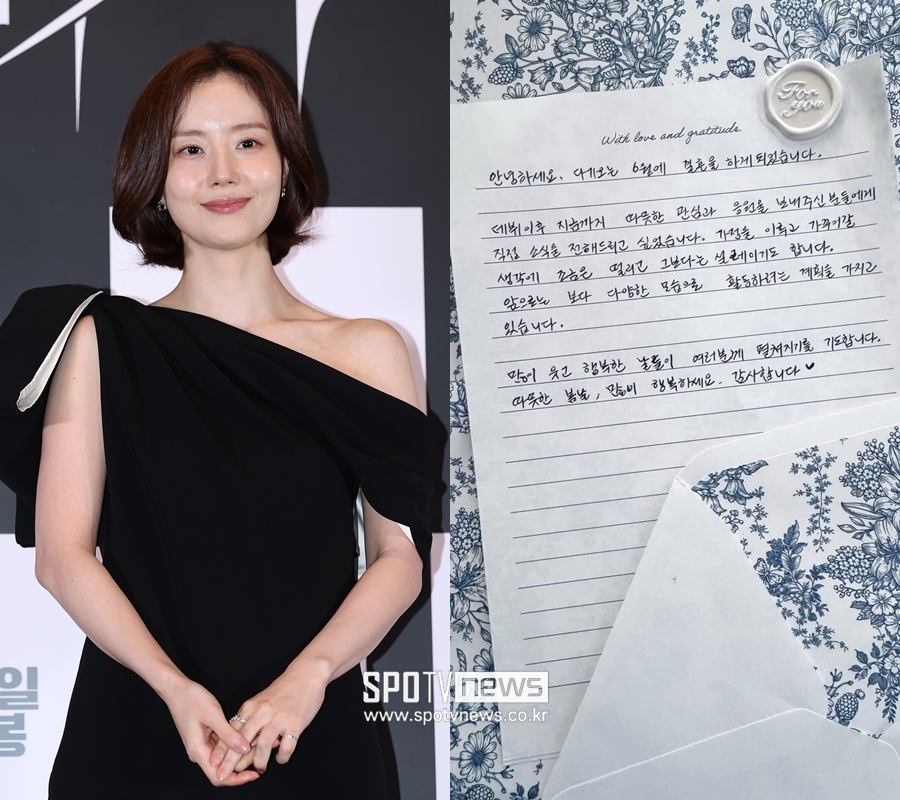 For
you
With love and gratitude.
안녕하세요. 다가오는 6월에 결혼을 하게 되었습니다.
데뷔 이후 지금까지 따뜻한 관심과 응원을 보내주신 분들에게
직접 소식을 전해드리고 싶었습니다. 가정을 이루고 가꾸어갈
생각에 조금은 떨리고 그보다는 설레이기도 합니다.
앞으로는 보다 다양한 모습으로 활동하려는 계획을 가지고
있습니다.
많이 웃고 행복한 날들이 여러분께 펼쳐지기를 기도합니다.
따뜻한 봄날, 많이 행복하세요. 감사합니다 ♥
일
SPOTV news
www.spotvnews.co.kr